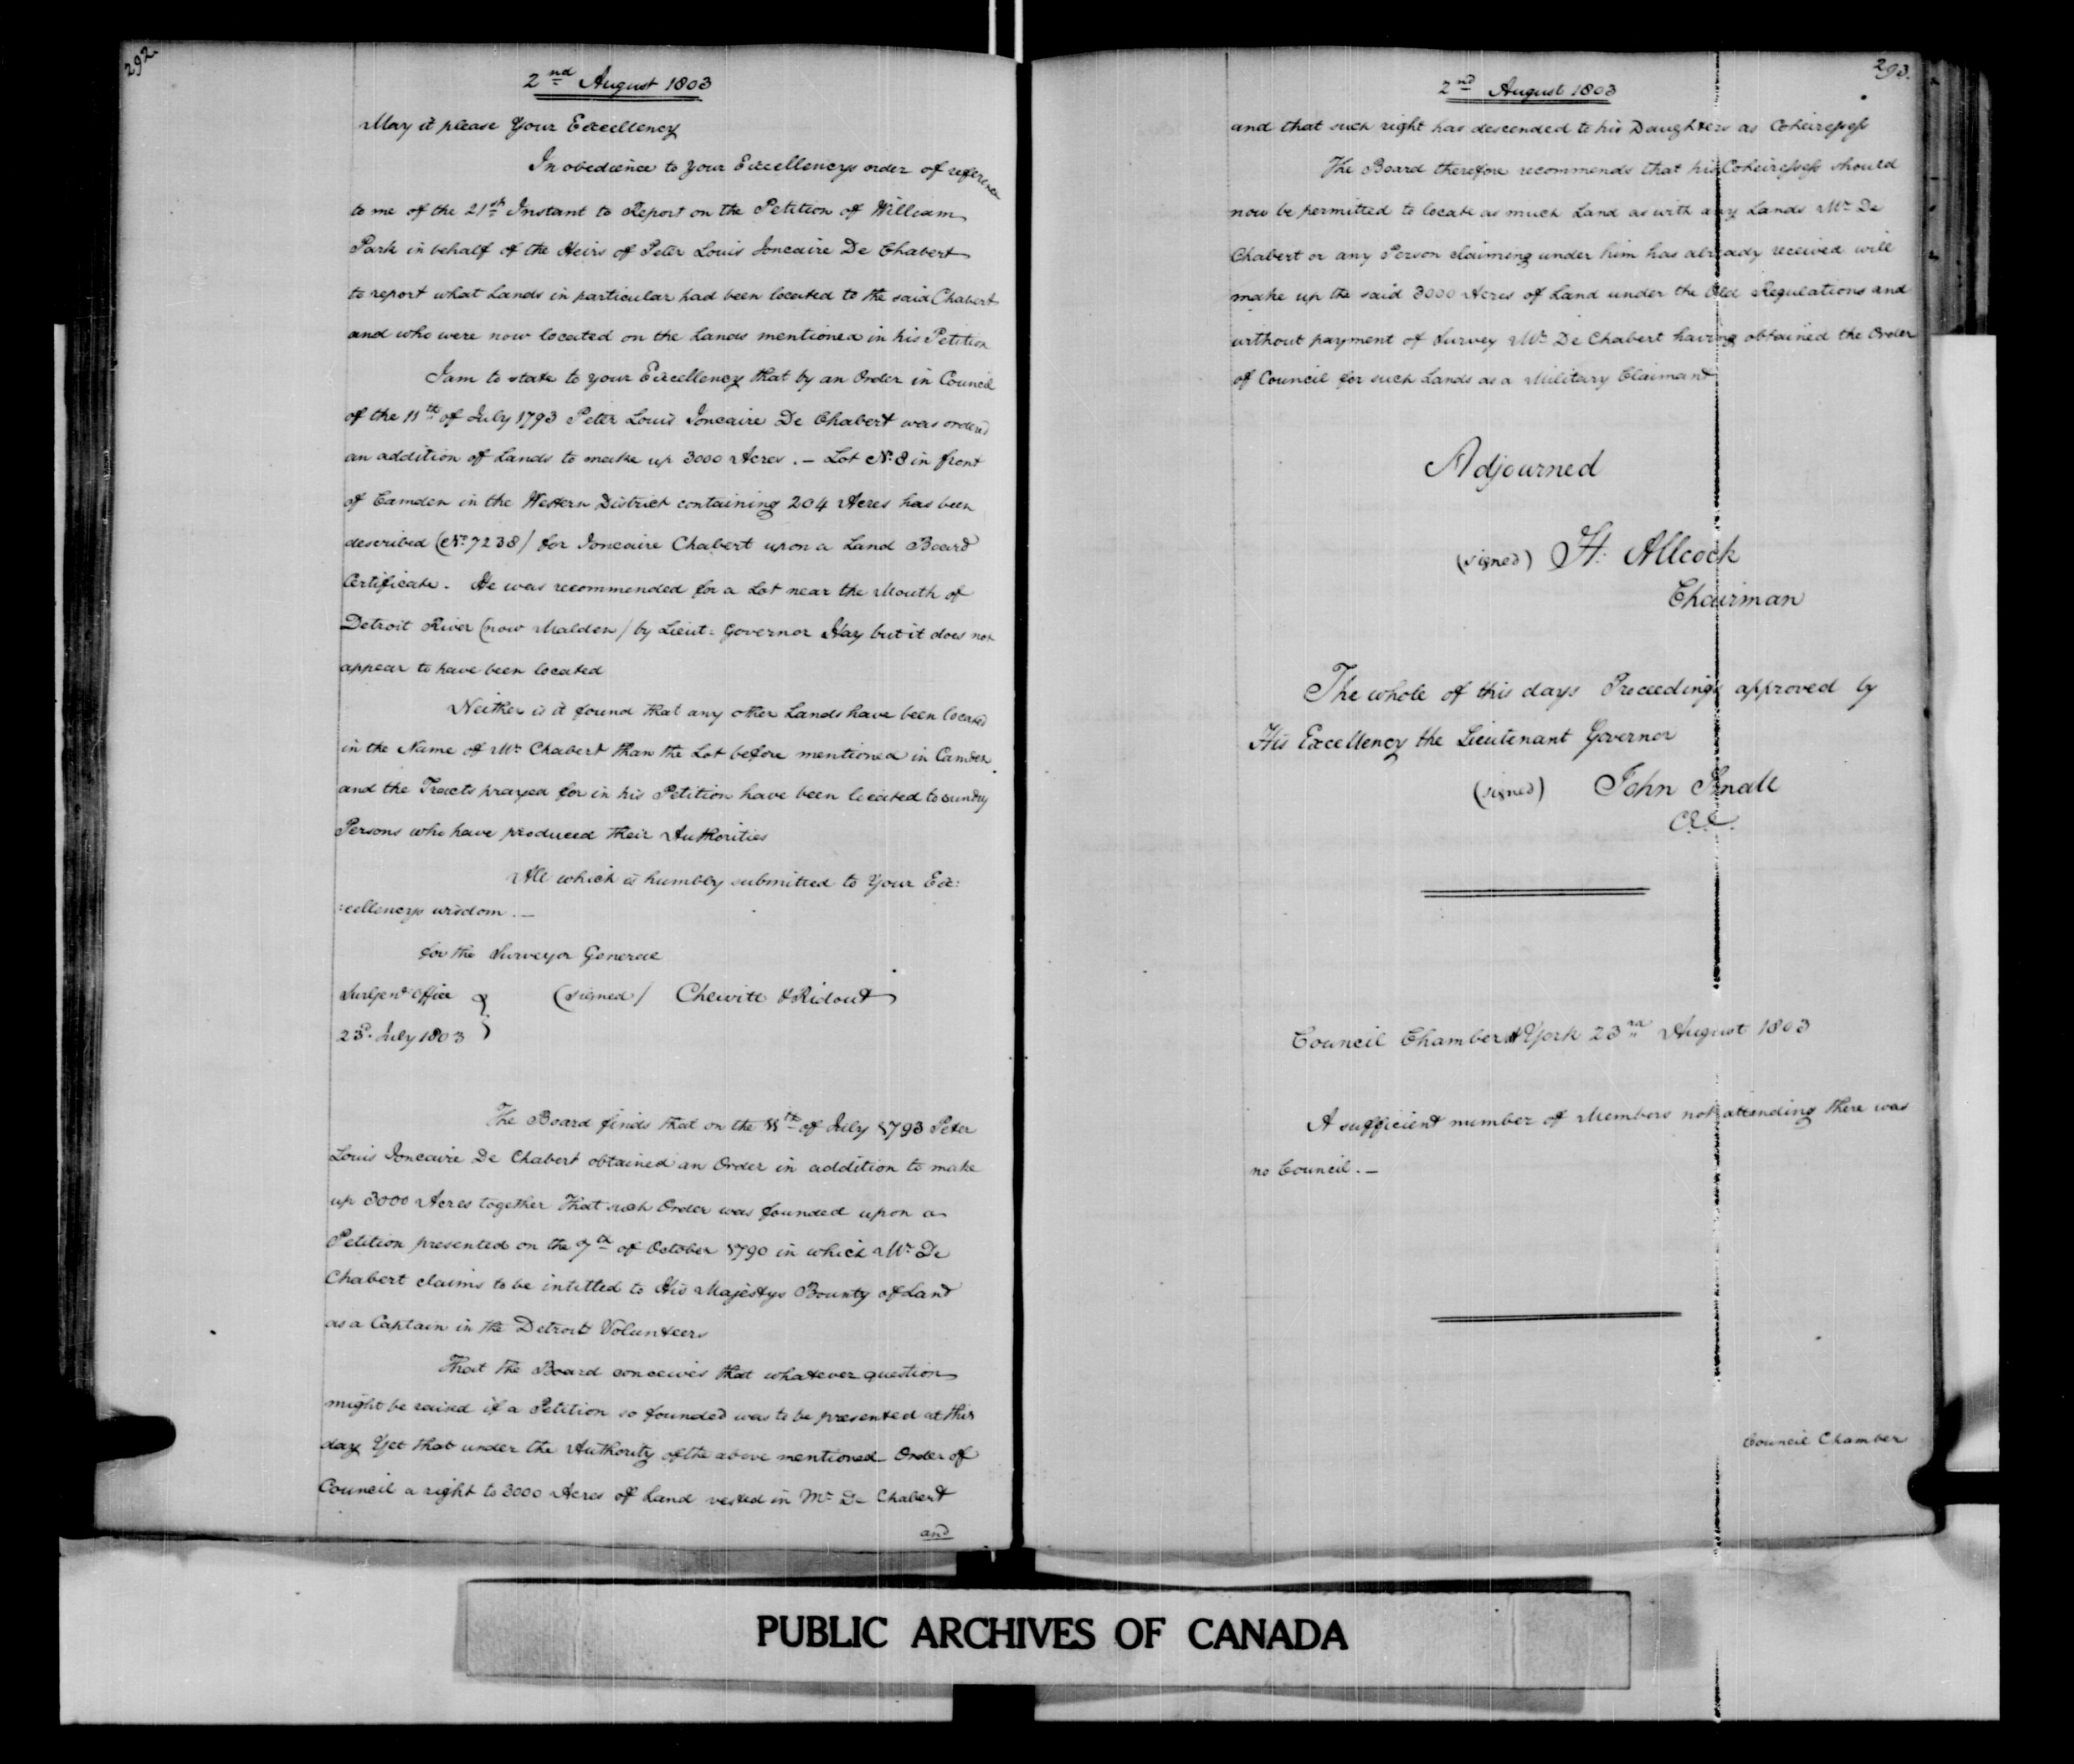 292
2nd August 1803
May it please Your Excellency
In obedience to your Excellencys order of reference
to me of the 21st Instant to Report on the Petition of William
Park in behalf of the Heirs of Peter Louis Joncaire De Chabert
to report what Lands in particular had been located to the said Chabert
and who were now located on the Lands mentioned in his Petition
I am to state to your Excellency that by an Order in Council
of the 11th of July 1793 Peter Louis Joncaire De Chabert was ordered
an addition of Lands to make up 3000 Acres. — Lot No 8 in front
of Camden in the Western District containing 204 Acres has been
described (No 7238) for Joncaire Chabert upon a Land Board
Certificate. He was recommended for a Lot near the Mouth of
Detroit River (now Malden) by Lieut: Governor Hay but it does not
appear to have been located
Neither is it found that any other Lands have been located
in the Name of Mr Chabert than the Lot before mentioned in Camden
and the Tracts prayed for in his Petition have been located to sundry
Persons who have produced their Authorities
All which is humbly submitted to Your Ex:
:cellencys wisdom. —
for the Surveyor General
Sur Genl Office } (signed) Chewitt & Ridout
23d July 1803
The Board finds that on the 11th of July 1793 Peter
Louis Joncaire De Chabert obtained an Order in addition to make
up 3000 Acres together That such Order was founded upon a
Petition presented on the 7th of October 1790 in which Mr De
Chabert claims to be intitled to His Majestys Bounty of Land
as a Captain in the Detroit Volunteers
That the Board conceives that whatever question
might be raised if a Petition so founded was to be presented at this
day Yet that under the Authority of the above mentioned Order of
Council a right to 3000 Acres of Land vested in Mr De Chabert
and
293.
2nd August 1803
and that such right has descended to his Daughters as Coheiresses
The Board therefore recommends that his Coheiresses should
now be permitted to locate as much Land as with any Lands Mr De
Chabert or any Person claiming under him has already received will
make up the said 3000 Acres of Land under the Old Regulations and
without payment of Survey Mr De Chabert having obtained the Order
of Council for such Lands as a Military Claimant
Adjourned
(signed) H. Allcock
Chairman
The whole of this days Proceedings approved by
His Excellency the Lieutenant Governor
(signed) John Small
C.E.C.
Council Chamber at York 23rd August 1803
A sufficient number of Members not attending there was
no Council. —
Council Chamber
PUBLIC ARCHIVES OF CANADA